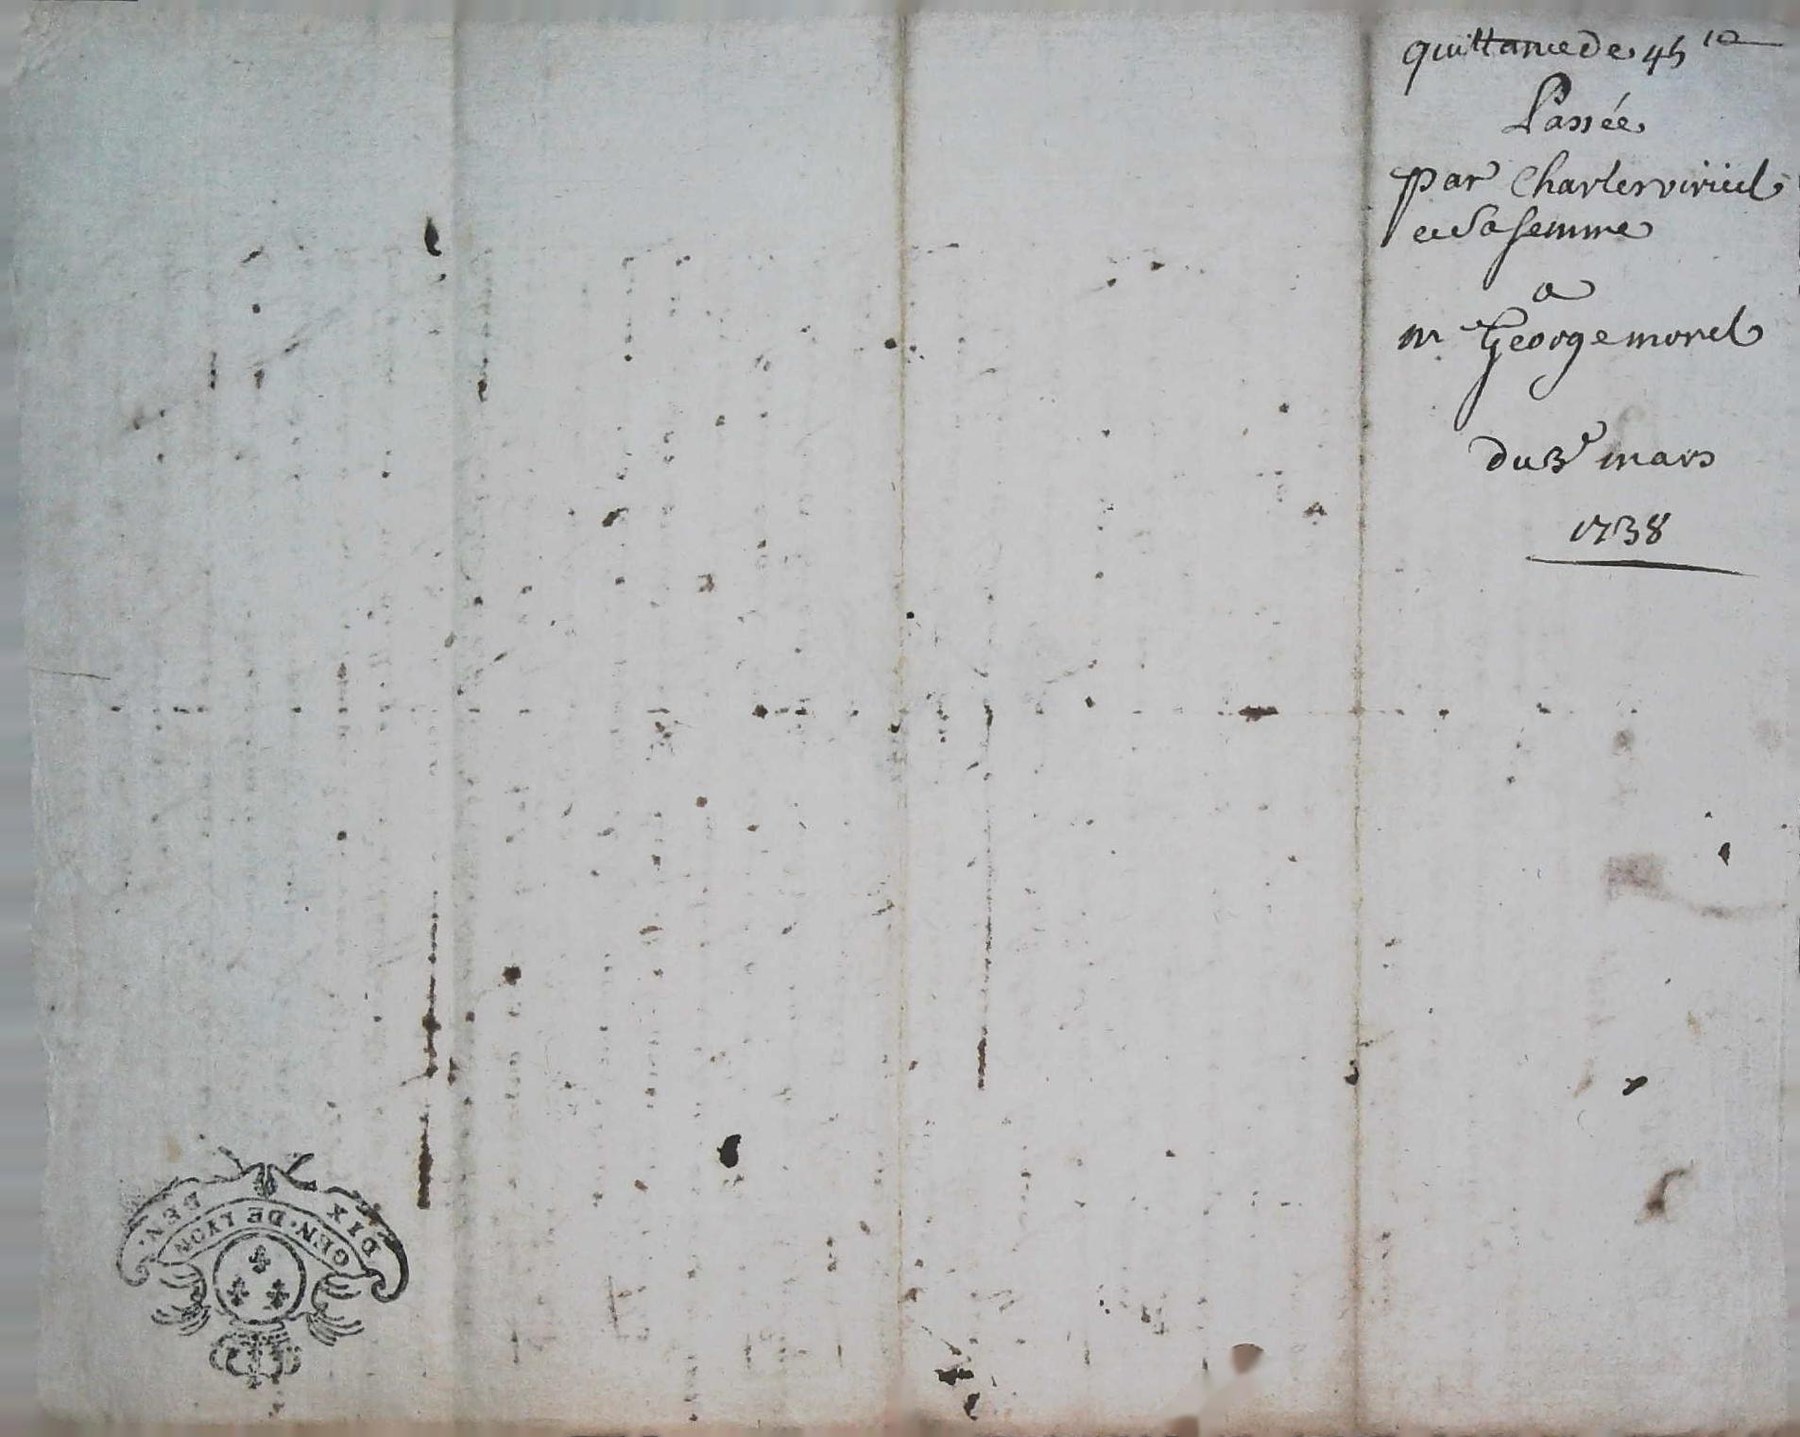 quittance de 45 ₶
Passée
par Charles viriel
et sa femme
a
mr George morel
du 3e mars
1738
DIX DEN.
GEN. DE LYON